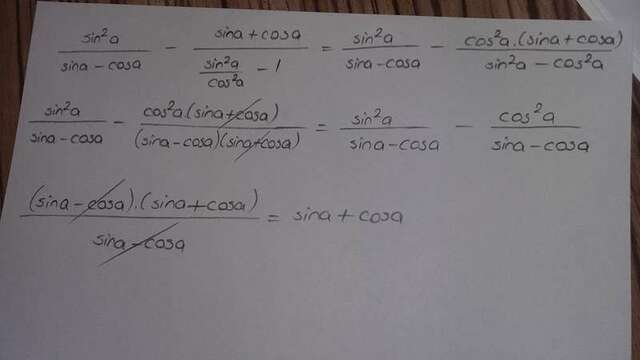 sin²a / (sina - cosa) - (sina + cosa) / (sin²a / cos²a - 1) = sin²a / (sina - cosa) - cos²a.(sina + cosa) / (sin²a - cos²a)
sin²a / (sina - cosa) - cos²a(sina + cosa) / (sina - cosa)(sina + cosa) = sin²a / (sina - cosa) - cos²a / (sina - cosa)
(sina - cosa).(sina + cosa) / (sina - cosa) = sina + cosa